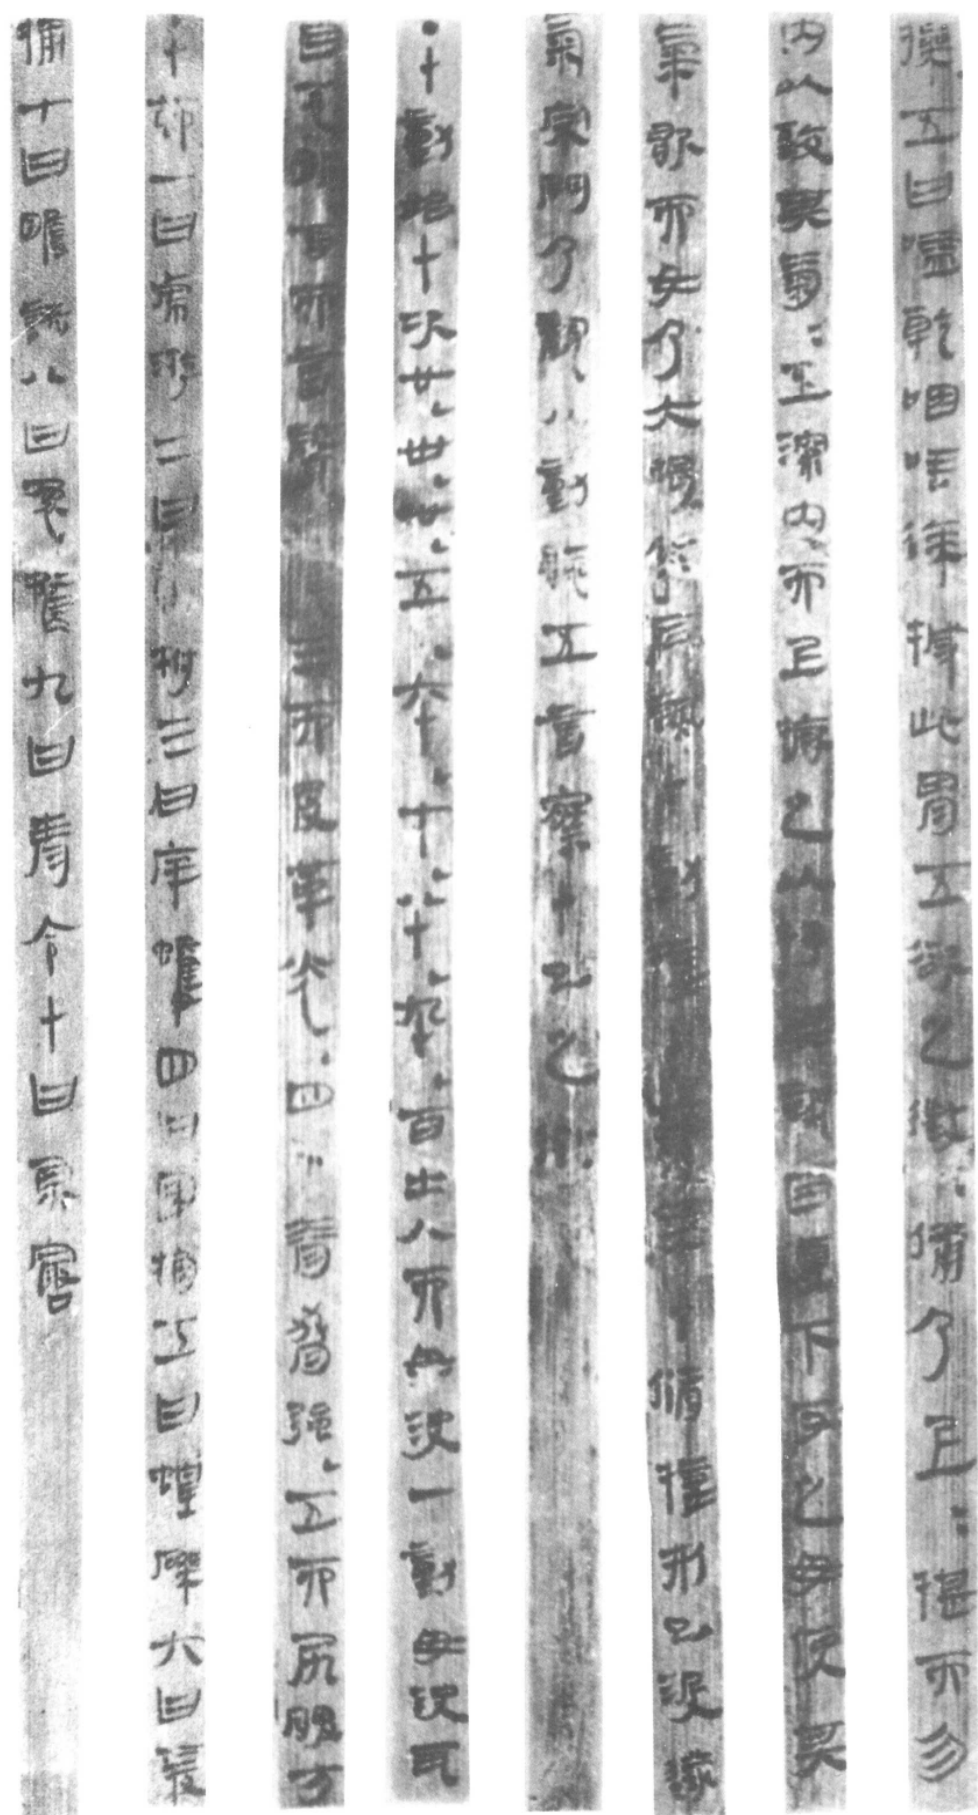 操五曰嗌乾咽唾徐撼此胃五欲之徵=備乃上=揕而勿
內以致其氣=至深內而上撅之以抒其熱因復下反之毋使其
氣歇而女乃大竭然后熱十動接十節雜十脩接形已沒遂
氣宗門乃觀八動聽五音察十已之徵
·十動始十次廿、卅、卌、五十、六十、七十、八十、九十、百出入而毋決一動毋決耳
目葱明再而音聲章三而皮革光、四而脊脅強、五而尻脾方
十節一曰虎游二曰蟬柎三曰斥蠖四曰囷桷五曰蝗磔六曰爰
據七曰瞻諸八曰兔騖九曰青令十曰魚嘬